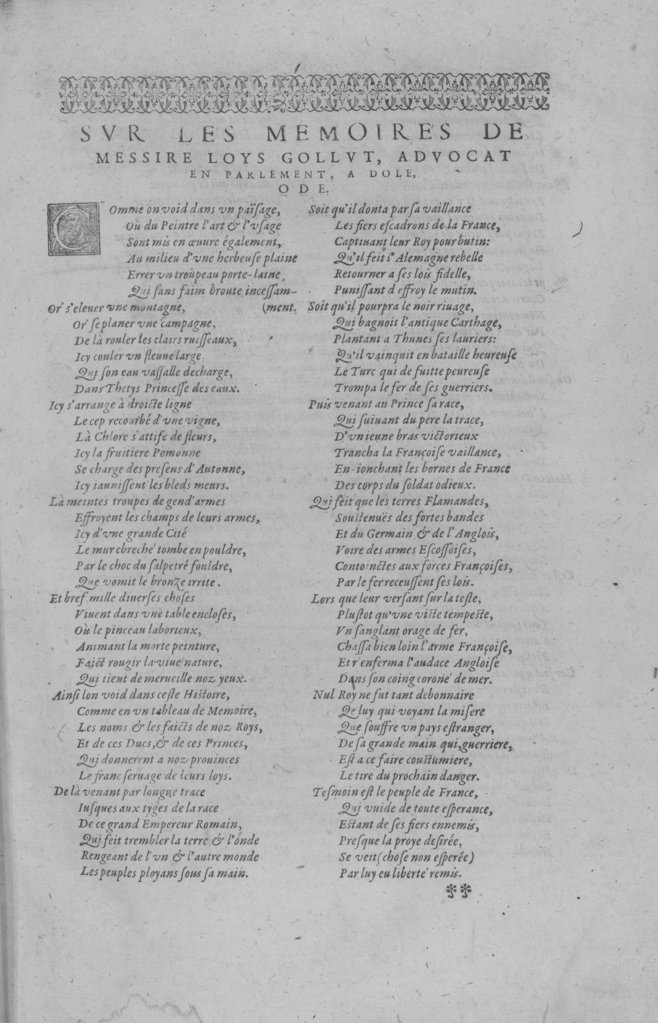 SVR LES MEMOIRES DE
MESSIRE LOYS GOLLVT, ADVOCAT
EN PARLEMENT, A DOLE,
ODE.
Comme on void dans vn païsage,
Où du Peintre l'art & l'vsage
Sont mis en œuure également,
Au milieu d'vne herbeuse plaine
Errer vn troupeau porte-laine,
Qui sans faim broute incessam-
(ment,
Or' s'eleuer vne montagne,
Or' se planer vne campagne,
De là rouler les clairs ruisseaux,
Icy couler vn fleuue large,
Qui son eau vassalle decharge,
Dans Thetys Princesse des eaux.
Icy s'arrange à droicte ligne
Le cep recourbé d'vne vigne,
Là Chlore s'attife de fleurs,
Icy la fruitiere Pomonne
Se charge des presens d'Autonne,
Icy iaunissent les bleds meurs.
Là meintes troupes de gend'armes
Effroyent les champs de leurs armes,
Icy d'vne grande Cité
Le mur ebreché tombe en pouldre,
Par le choc du salpetré fouldre,
Que vomit le bronze irrité.
Et bref mille diuerses choses
Viuent dans vne table encloses,
Où le pinceau laborieux,
Animant la morte peinture,
Faict rougir la viue nature,
Qui tient de merueille noz yeux.
Ainsi lon void dans ceste Histoire,
Comme en vn tableau de Memoire,
Les noms & les faicts de noz Roys,
Et de ces Ducs, & de ces Princes,
Qui donnerent a noz prouinces
Le franc seruage de leurs loys.
De là venant par longue trace
Iusques aux tyges de la race
De ce grand Empereur Romain,
Qui feit trembler la terre & l'onde
Rengeant de l'vn & l'autre monde
Les peuples ployans sous sa main.
Soit qu'il donta par sa vaillance
Les fiers escadrons de la France,
Captiuant leur Roy pour butin:
Qu'il feit l'Alemagne rebelle
Retourner a ses lois fidelle,
Punissant d'effroy le mutin.
Soit qu'il pourpra le noir riuage,
Qui bagnoit l'antique Carthage,
Plantant a Thunes ses lauriers:
Qu'il vainquit en bataille heureuse
Le Turc qui de fuitte peureuse
Trompa le fer de ses guerriers.
Puis venant au Prince sa race,
Qui suiuant du pere la trace,
D'vn ieune bras victorieux
Trancha la Françoise vaillance,
En-ionchant les bornes de France
Des corps du soldat odieux.
Qui feit que les terres Flamandes,
Soustenuës des fortes bandes
Et du Germain & de l'Anglois,
Voire des armes Escossoises,
Contoinctes aux forces Françoises,
Par le fer receussent ses lois.
Lors que leur versant sur la teste,
Plustot qu'vne viste tempeste,
Vn sanglant orage de fer,
Chassa bien loin l'arme Françoise,
Et r'enferma l'audace Angloise
Dans son coing coroné de mer.
Nul Roy ne fut tant debonnaire
Qe luy qui voyant la misere
Que souffre vn pays estranger,
De sa grande main qui, guerriere,
Est a ce faire coustumiere,
Le tire du prochain danger.
Tesmoin est le peuple de France,
Qui vuide de toute esperance,
Estant de ses fiers ennemis,
Presque la proye desirée,
Se veit (chose non esperée)
Par luy en liberté remis.
**